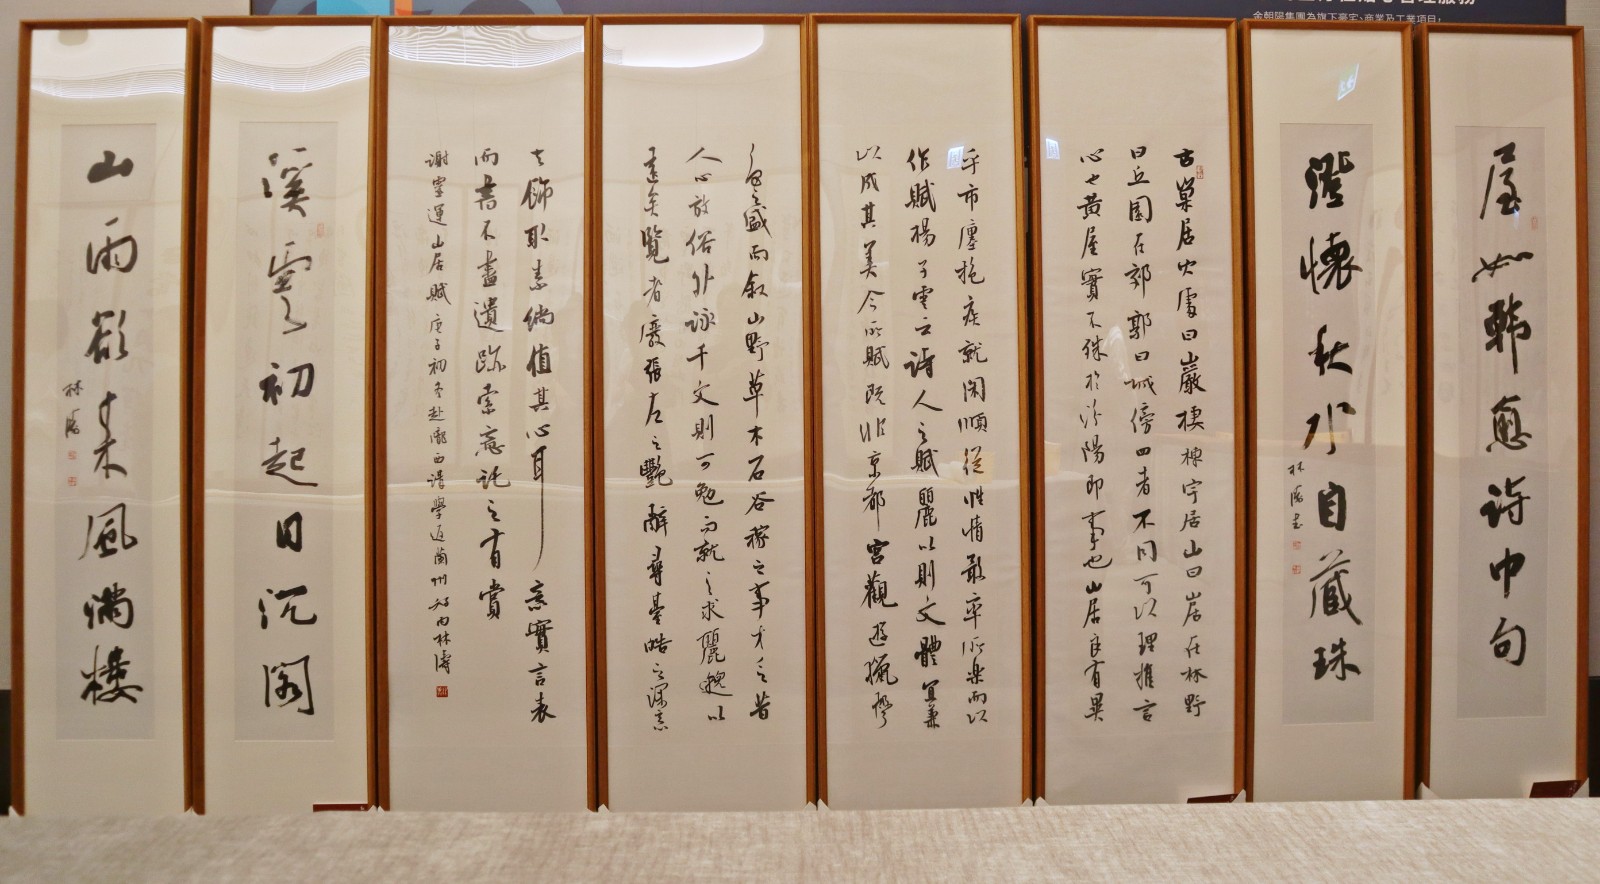 金朝陽集團為旗下豪宅、商業及工業項目，
屋如韓愈詩中句
澄懷秋水自藏珠
林濤書
古巢居穴處曰巖棲棟宇居山曰山居在林野
曰丘園在郊郭曰城傍四者不同可以理推言
心也黃屋實不殊於汾陽即事也山居良有異
乎市廛抱疾就閑順從性情敢率所樂而以
作賦楊子雲云詩人之賦麗以則文體宜兼
以成其美今所賦既非京都宮觀遊獵聲
色之盛而敘山野草木石谷稼之事才乏昔
人心放俗外詠于文則可勉而就之求麗邈以
遠矣覽者廢張左之艷辭尋臺皓之深意
去飾取素儻值其心耳意實言表
而書不盡遺跡索意託之有賞
謝靈運山居賦庚子初冬赴隴西講學返蘭州 林濤
溪雲初起日沉閣
山雨欲來風滿樓
林濤